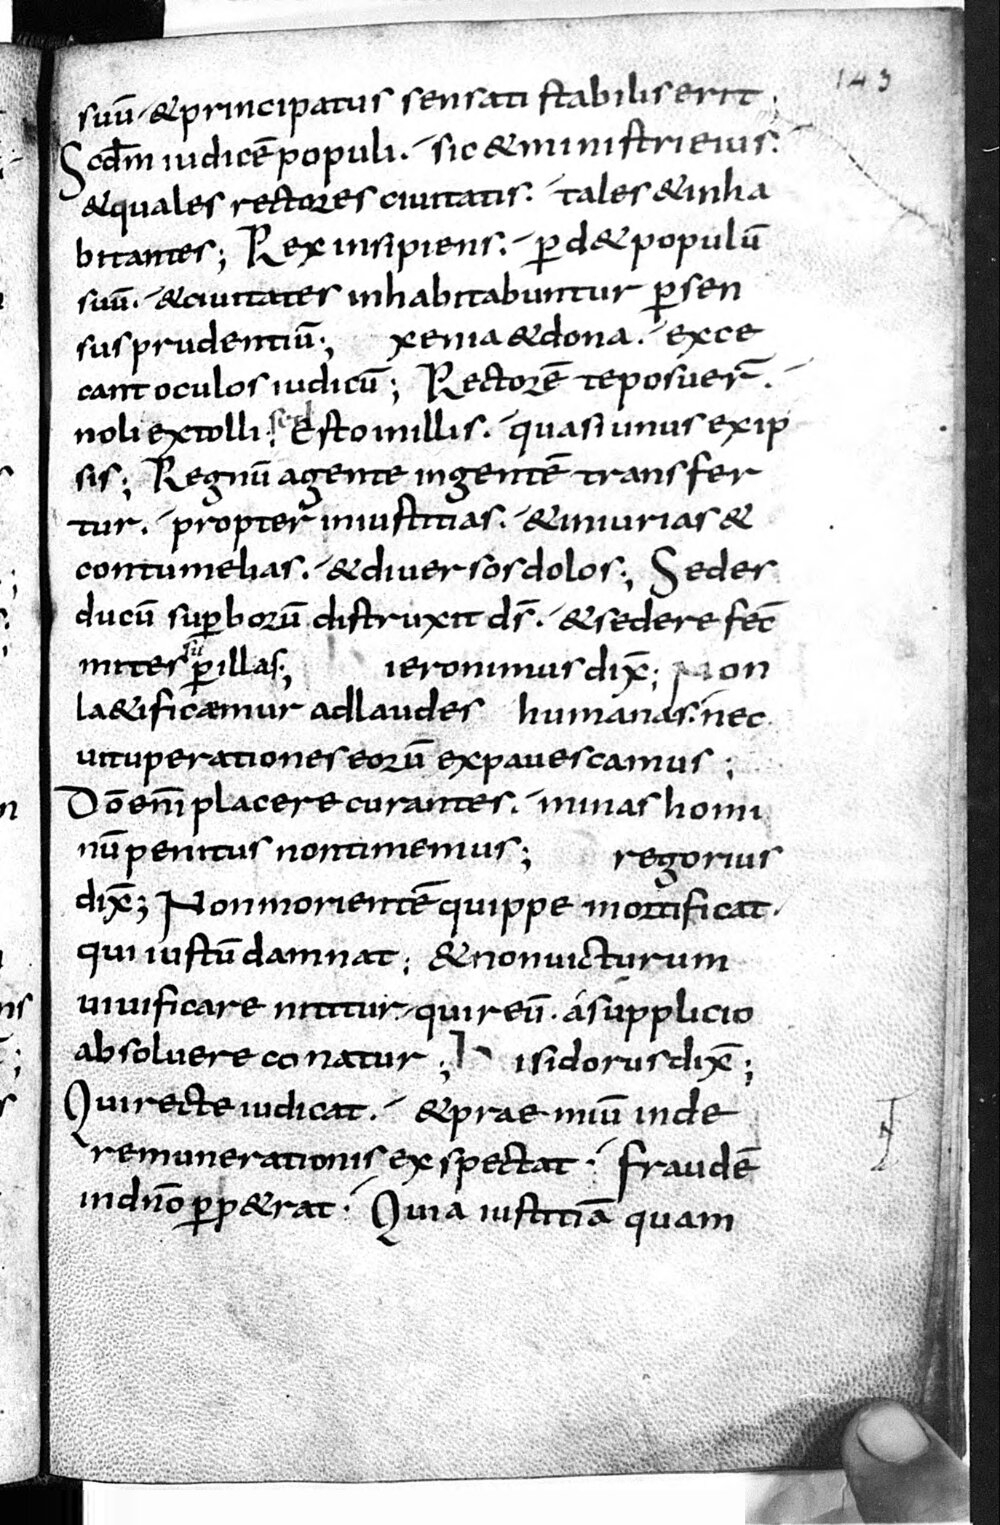 143
suū ⁊ & principatus sensati stabilis erit;
Scdm̄ iudicē populi. sic & ministri eius:
& quales rectores ciuitatis: tales & inha
bitantes; Rex insipiens. ꝑd& populū
suū. & ciuitates inhabitabuntur ꝑ sen
sus prudentiū; xenia & dona. exce
cant oculos iudicū; Rectorē te posuer̄.
noli extolli; sed Esto in illis. quasi unus ex ip
sis; Regnū a gente in gentē transfer
tur. propter iniustitias. & iniurias &
contumelias. & diuersos dolos; Sedes
ducū suꝑborū distruxit ds̄. & sedere fec̄
mites sū ꝑ illas; ieronimus dix̄; Non
la&ificaemur ad laudes humanas. nec
uituperationes eorū expauescamus;
Dō enī placere curantes. minas homi
nū penitus non timemus; regorius
dix̄; Non morientē quippe mortificat
qui iustū damnat; & non uicturum
uiuificare nititur qui reū. a supplicio
absoluere conatur; isidorus dix̄;
Qui recte iudicat. & praemiū inde
remunerationis exspectat. fraudē
in dn̄o ꝑp&rat. Quia iustitiā quam